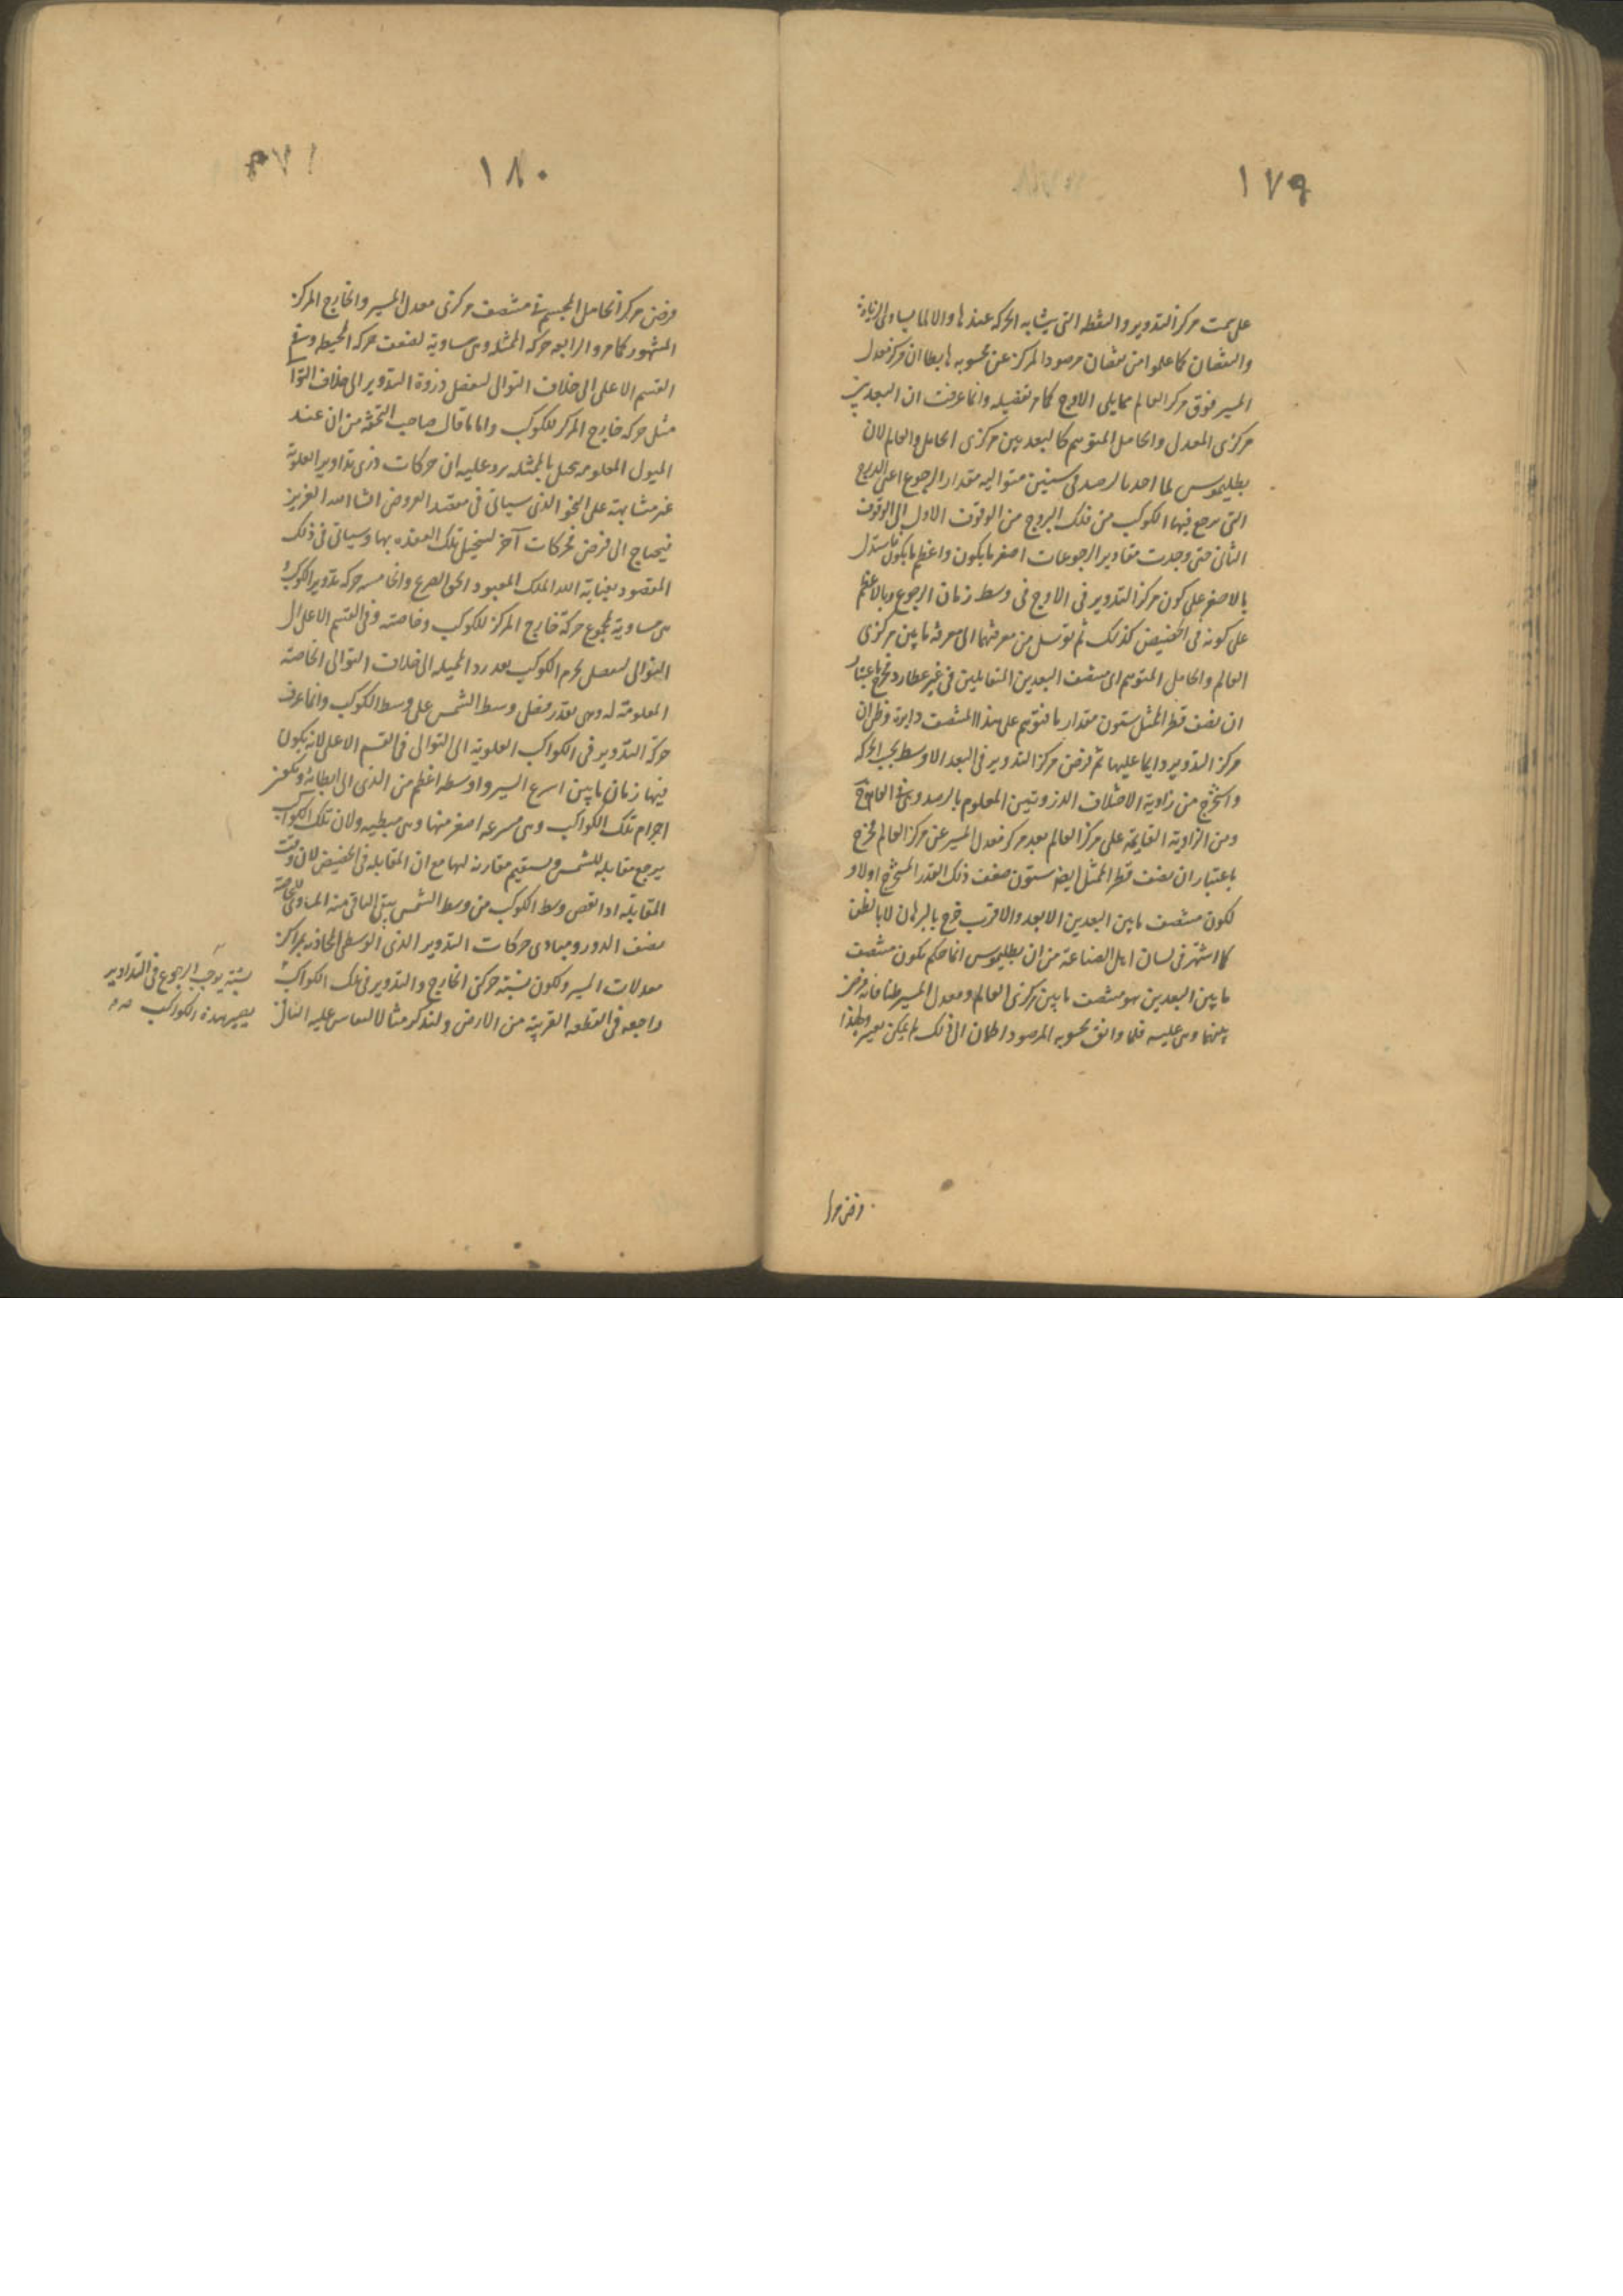 ١٧٩
على سمت مركز التدوير والنقطة التى يتشابه الحركة عندها والا لما يساوى الزيادة
والنقصان كما علموا من نقصان مرصود المركز عن محسوبه هابطا ان مركز معدل
المسير فوق مركز العالم مما يلى الاوج كما مر تفصيله وانما عرفت ان البعد بين
مركزى المعدل والحامل المتوهم كالبعد بين مركزى الحامل والعالم لان
بطليموس لما اخذ بالرصد فى سنين متواليه مقدار الرجوع اعنى
التى يرجع فيها الكوكب من فلك البروج من الوقوف الاول الى الوقوف
الثانى حتى وجدت مقادير الرجوعات اصغر ما يكون واعظم ما يكون فاستدل
بالاصغر على كون مركز التدوير فى الاوج فى وسط زمان الرجوع وبالاعظم
على كونه فى الحضيض كذلك ثم توسل من معرفتهما الى معرفة ما بين مركزى
العالم والحامل المتوهم اى منتصف البعدين المتقابلين فى غير عطارد فخرج باعتبار
ان نصف قطر الممثل ستون مقدار ما فتوهم على هذا المنتصف دايرة وظن ان
مركز التدوير دايما عليها ثم فرض مركز التدوير فى البعد الاوسط بحسب الحركة
واستخرج من زاوية الاختلاف المعلوم بالرصد
ومن الزاوية القايمة على مركز العالم بعد مركز معدل المسير عن مركز العالم فخرج
باعتبار ان نصف قطر الممثل ايضا ستون ضعف ذلك القدر المستخرج اولا و
لكون منتصف ما بين البعدين الابعد والاقرب خرج بالبرهان لا بالظن
كما اشتهر فى لسان اهل الصناعة من ان بطليموس انما حكم بكون منتصف
ما بين البعدين هو منتصف ما بين مركزى العالم ومعدل المسير ظنا فانه فرض
بينهما وبنى عليه فلما وافق محسوبه المرصود اطمان الى ذلك لم يمكن تغييره ولهذا
وفرض مركز
١٨٠
فرض مركز الحامل المجسم فى منتصف مركزى معدل المسير والخارج المركز
المشهور كما مر والرابعه حركة الممثل وهى مساوية لضعف حركة المحيطه وفى
القسم الاعلى الى خلاف التوالى لتفضل ذروة التدوير الى خلاف التوالى
مثل حركة خارج المركز للكوكب واما ما قال صاحب التحفة من ان عند
الميول المعلومه يحل بالممثله يرد عليه ان حركات ذرى تداوير العلوية
غير متشابهة على النحو الذى سياتى فى معتقد العروض انشا الله العزيز
فيحتاج الى فرض محركات آخر لينحل تلك العقده بها وسياتى فى ذلك
المقصود بعناية الله الملك المعبود والخامسه حركة تدوير الكوكب
هى مساوية لمجموع حركة خارج المركز للكوكب وخاصته وفى القسم الاعلى الى
التوالى ليفضل لجرم الكوكب بعد رد المميله الى خلاف التوالى الخاصة
المعلومة له وهى بقدر فضل وسط الشمس على وسط الكوكب وانما عرف
حركة التدوير فى الكواكب العلوية الى التوالى فى القسم الاعلى لانه يكون
فيها زمان ما بين اسرع السير واوسطه اعظم من الذى الى ابطائه وتكون
اجرام تلك الكواكب وهى مسرعه اصغر منها وهى مبطيه ولان تلك الكواكب
يرجع مقابله للشمس ويستقيم مقارنة لها مع ان المقابله فى الحضيض لان وقت
المقابله اذا نقص وسط الكوكب من وسط الشمس يبقى الباقى منه المساوى للخاصة
نصف الدور ومبادى حركات التدوير الذرى الوسطى المحاذية بمراكز
معدلات المسير ولكون نسبة حركتى الخارج والتدوير فى تلك الكواكب
نسبة يوجب الرجوع فى التداوير
يصير هذه الكواكب صح
راجعه فى القطعه القريبة من الارض ولنذكر مثالا ليقاس عليه الباقى